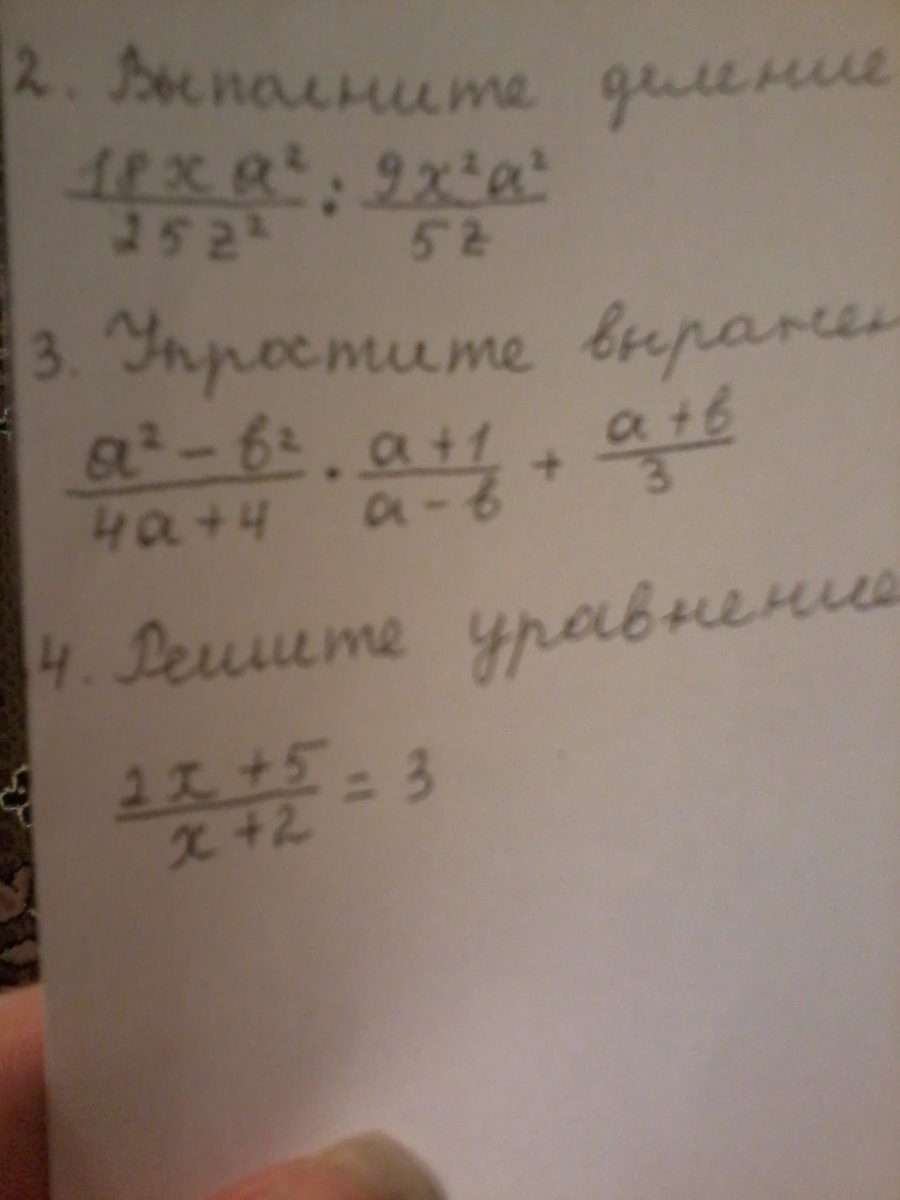 2. Выполните деление
18xa²/25z² : 9x²a²/5z
3. Упростите выражен
a² - b²/4a + 4 · a + 1/a - b + a + b/3
4. Решите уравнение
2x + 5/x + 2 = 3